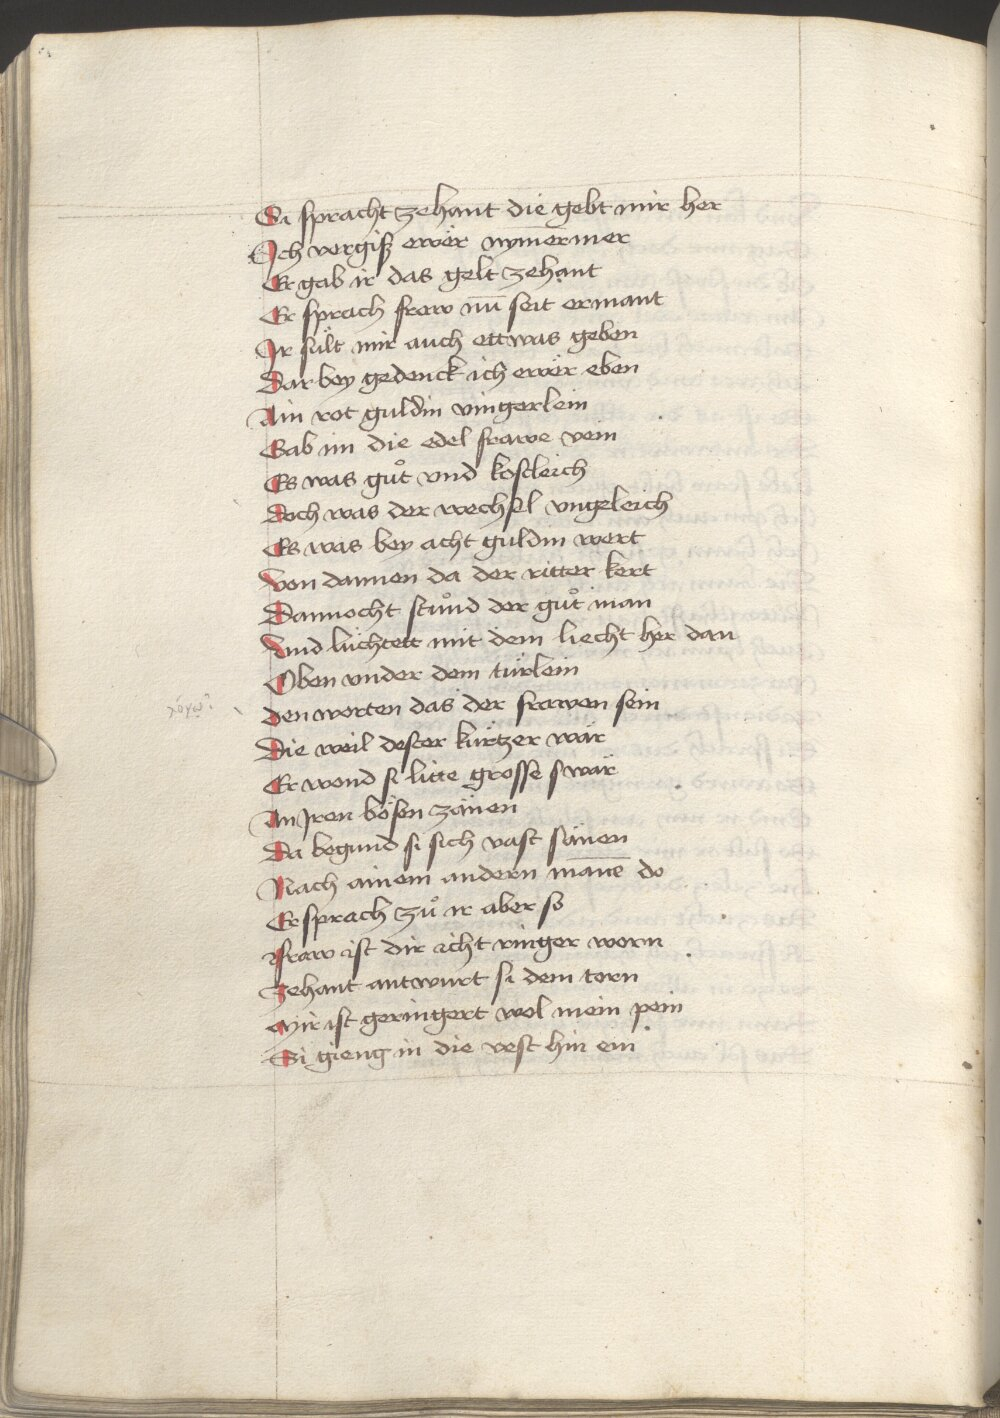 Si spracht zehant die gebt mir her
Ich vergiß ewer nym̄ermer
Er gab ir das gelt zehant
Er sprach fraw nū seit ermant
Ir sült mir auch ettwas geben
Dar bey gedenck ich ewer eben
Ain rot guldin vingerlein
Gab im die edel frawe vein
Es was guͦt vnd kostleich
Doch was der wechsel vngeleich
Es was bey acht guldin wert
Von dannen da der ritter kert
Dannocht stuͦnd der guͦt man
Vnd lüchtett mit dem liecht her dan
Oben vnder dem türlein
Den worten das der frawen sein
Die weil dester kürtzer wär
Er wond si litte grosse swär
An Jren bösen zänen
Da begund si sich vast sänen
Nach ainem andern mann̄e do
Er sprach zuͦ ir aber so
Fraw ist dir icht ringer worn
Zehant antwurt si dem torn
Mir ist geringert wol mein pein
Si gieng in die vest hin ein